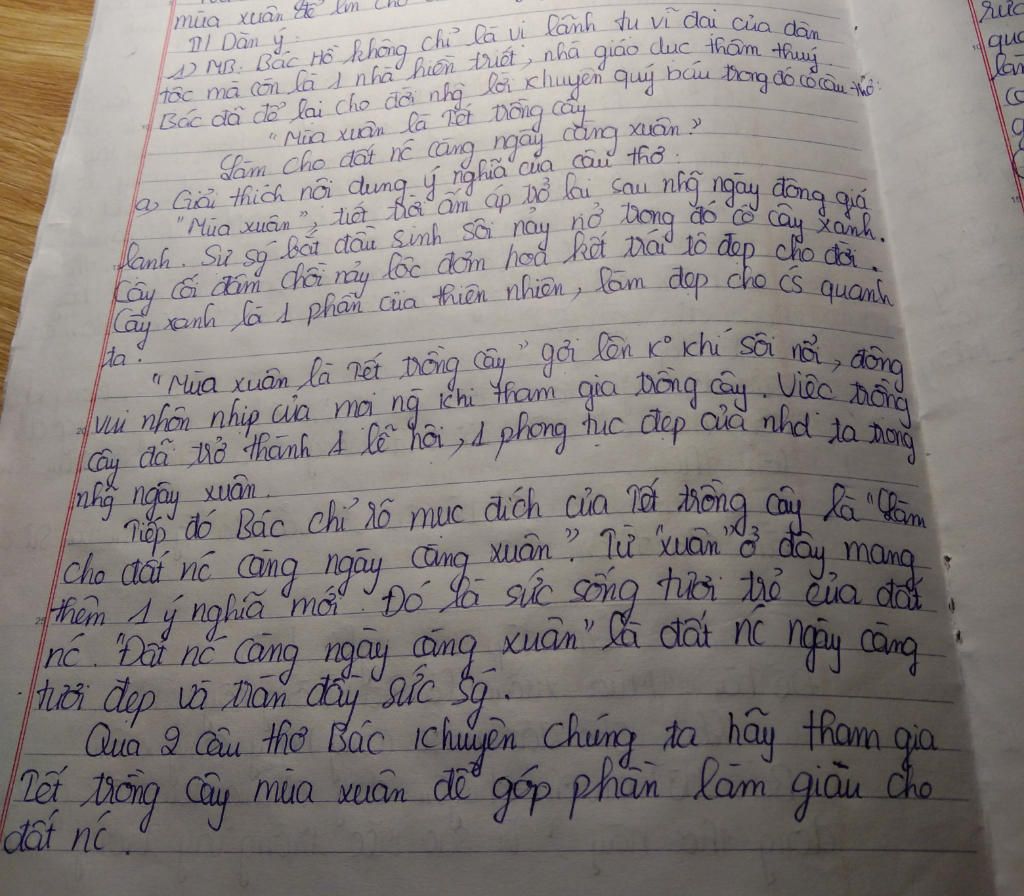 mùa xuân để
II/ Dàn ý:
1) MB: Bác Hồ không chỉ là vị lãnh tụ vĩ đại của dân
tộc mà còn là 1 nhà hiền triết, nhà giáo dục thâm thuý.
Bác đã để lại cho đời nhg lời khuyên quý báu trong đó có câu thơ:
"Mùa xuân là Tết trồng cây
Làm cho đất nc càng ngày càng xuân"
a) Giải thích nội dung ý nghĩa của câu thơ.
"Mùa xuân", tiết trời ấm áp trở lại sau nhg ngày đông giá
lạnh. Sự sg bắt đầu sinh sôi nảy nở trong đó có cây xanh.
Cây cối đâm chồi nảy lộc đơm hoa kết trái tô đẹp cho đời.
Cây xanh là 1 phần của thiên nhiên, làm đẹp cho cs quanh
ta.
"Mùa xuân là Tết trồng cây" gợi lên k° khí sôi nổi, đông
vui nhộn nhịp của mọi ng khi tham gia trồng cây. Việc trồng
cây đã trở thành 1 lễ hội, 1 phong tục đẹp của nhd ta trong
nhg ngày xuân.
Tiếp đó Bác chỉ rõ mục đích của Tết trồng cây là "Làm
cho đất nc càng ngày càng xuân". Từ "xuân" ở đây mang
thêm 1 ý nghĩa mới. Đó là sức sống tươi trẻ của đất
nc. "Đất nc càng ngày càng xuân" là đất nc ngày càng
tươi đẹp và tràn đầy sức sg.
Qua 2 câu thơ Bác khuyên chúng ta hãy tham gia
Tết trồng cây mùa xuân để góp phần làm giàu cho
đất nc.